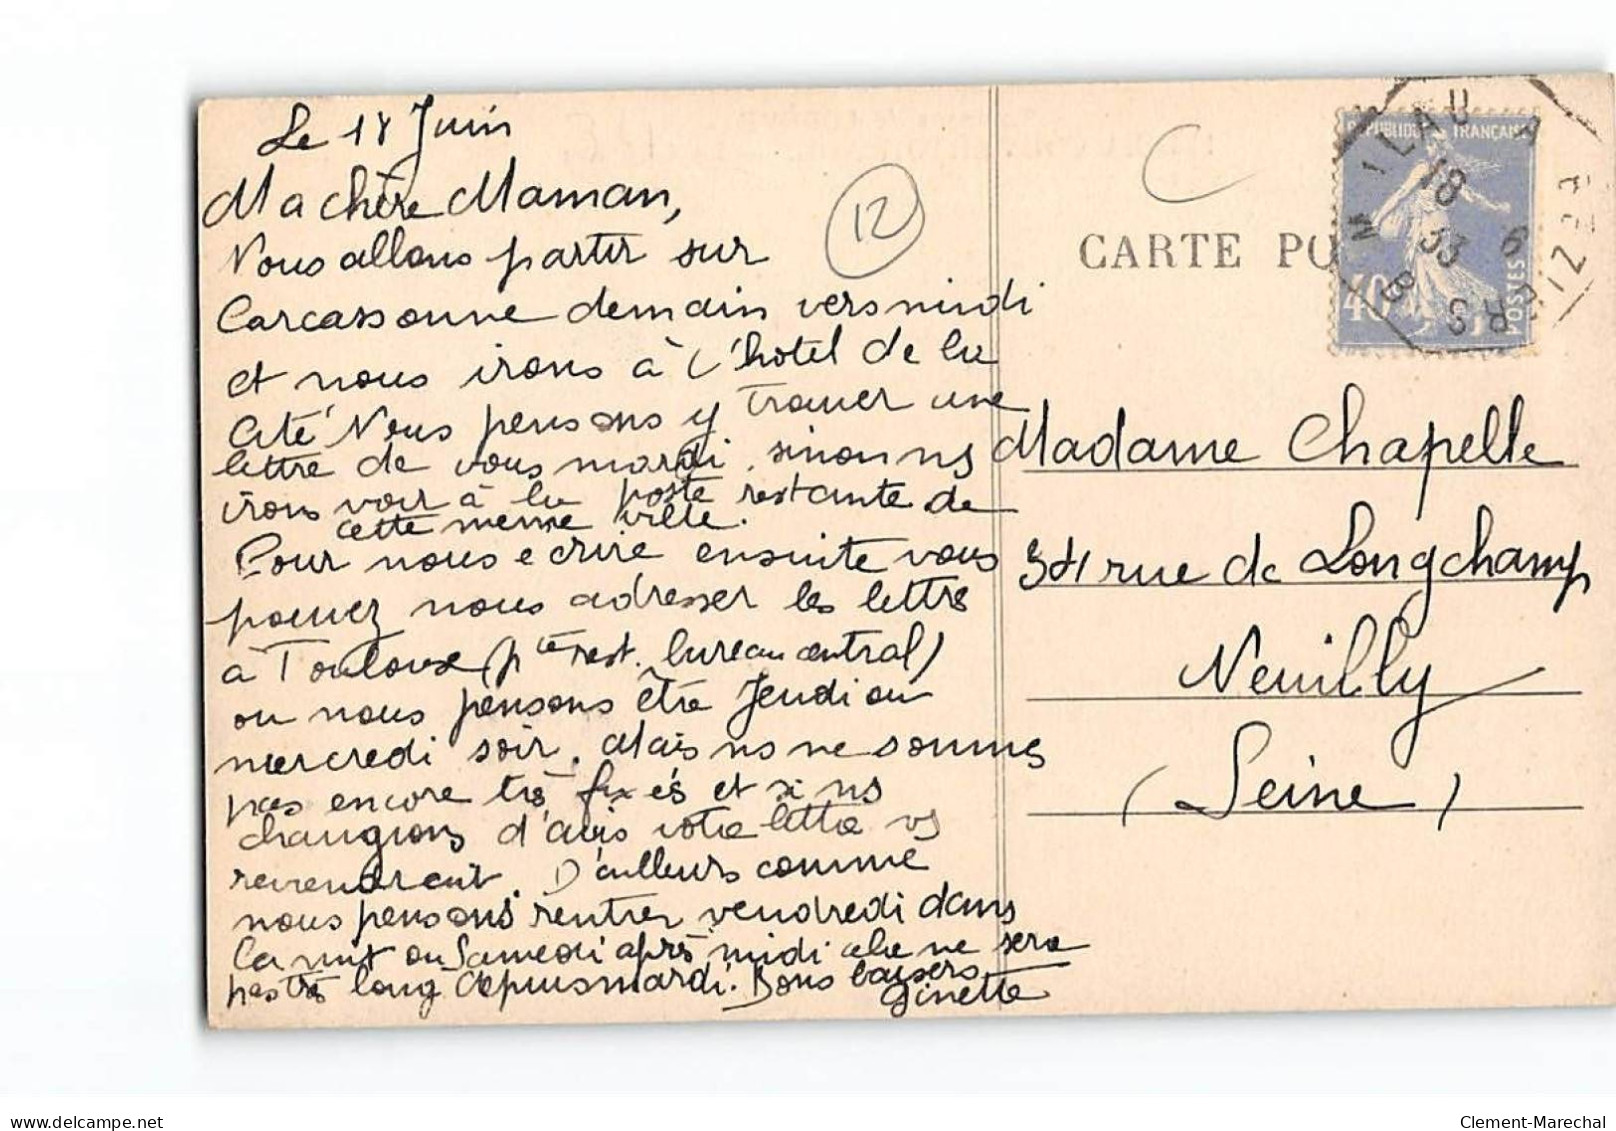 Le 18 Juin
Ma chère Maman,
Nous allons partir sur
Carcassonne demain vers midi
et nous irons à l'hotel de la
Cité Nous pensons y trouver une
lettre de vous mardi. sinon ns
irons voir à la poste restante de
cette meme ville.
Pour nous ecrire ensuite vous
pouvez nous adresser les lettres
à Toulouse (pte rest. bureau central)
ou nous pensons être Jeudi ou
mercredi soir. Mais ns ne sommes
pas encore très fixés et si ns
changions d'avis votre lettre vs
reviendrait. D'ailleurs comme
nous pensons rentrer vendredi dans
la nuit ou Samedi après midi cela ne sera
pas très long depuis mardi. Bons baisers
Ginette
12
CARTE PO
REPUBLIQUE FRANÇAISE
POSTES
40
MILAU A
18
6
33
RS
Madame Chapelle
34 rue de Longchamp
Neuilly
(Seine)
delcampe.net
Clement-Marechal